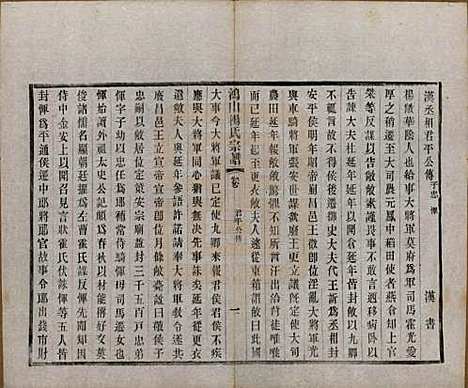 漢丞相君平公傳 子忠 惲 漢書
楊敞華陰人也給事大將軍莫府爲軍司馬霍光愛
厚之稍遷至大司農元鳳中稻田使者燕倉知上官
桀等反謀以告敞敞素謹畏事不敢言迺移病臥以
告諫大夫杜延年延年以聞蒼延年皆封敞以九卿
不輒言故不得侯後遷御史大夫代王訢爲丞相封
安平侯明年昭帝崩昌邑王徵即位淫亂大將軍光
與車騎將軍張安世謀欲廢王更立議既定使大司
農田延年報敞敞驚懼不知所言汗出洽背徒唯唯
而已延年起至更衣敞夫人遽從東箱謂敞曰此國
鴻山楊氏宗譜 卷 君平公傳 一
大事今大將軍議已定使九卿來報君侯君侯不疾
應與大將軍同心猶與無決先事誅矣延年從更衣
還敞夫人與延年參語許諾請奉大將軍教令遂共
廢昌邑王立宣帝宣帝即位月餘敞薨謚曰敬侯子
忠嗣以敞居位定策安宗廟益封三千五百戶忠弟
惲字子幼以忠任爲郎補常侍騎惲母司馬遷女也
惲始讀外祖太史公記頗爲春秋以材能稱好交英
俊諸儒名顯朝廷擢爲左曹霍氏謀反惲先聞知因
侍中金安上以聞召見言狀霍氏伏誅惲等五人皆
封惲爲平通侯遷中郎將郎官故事令郎出錢市財